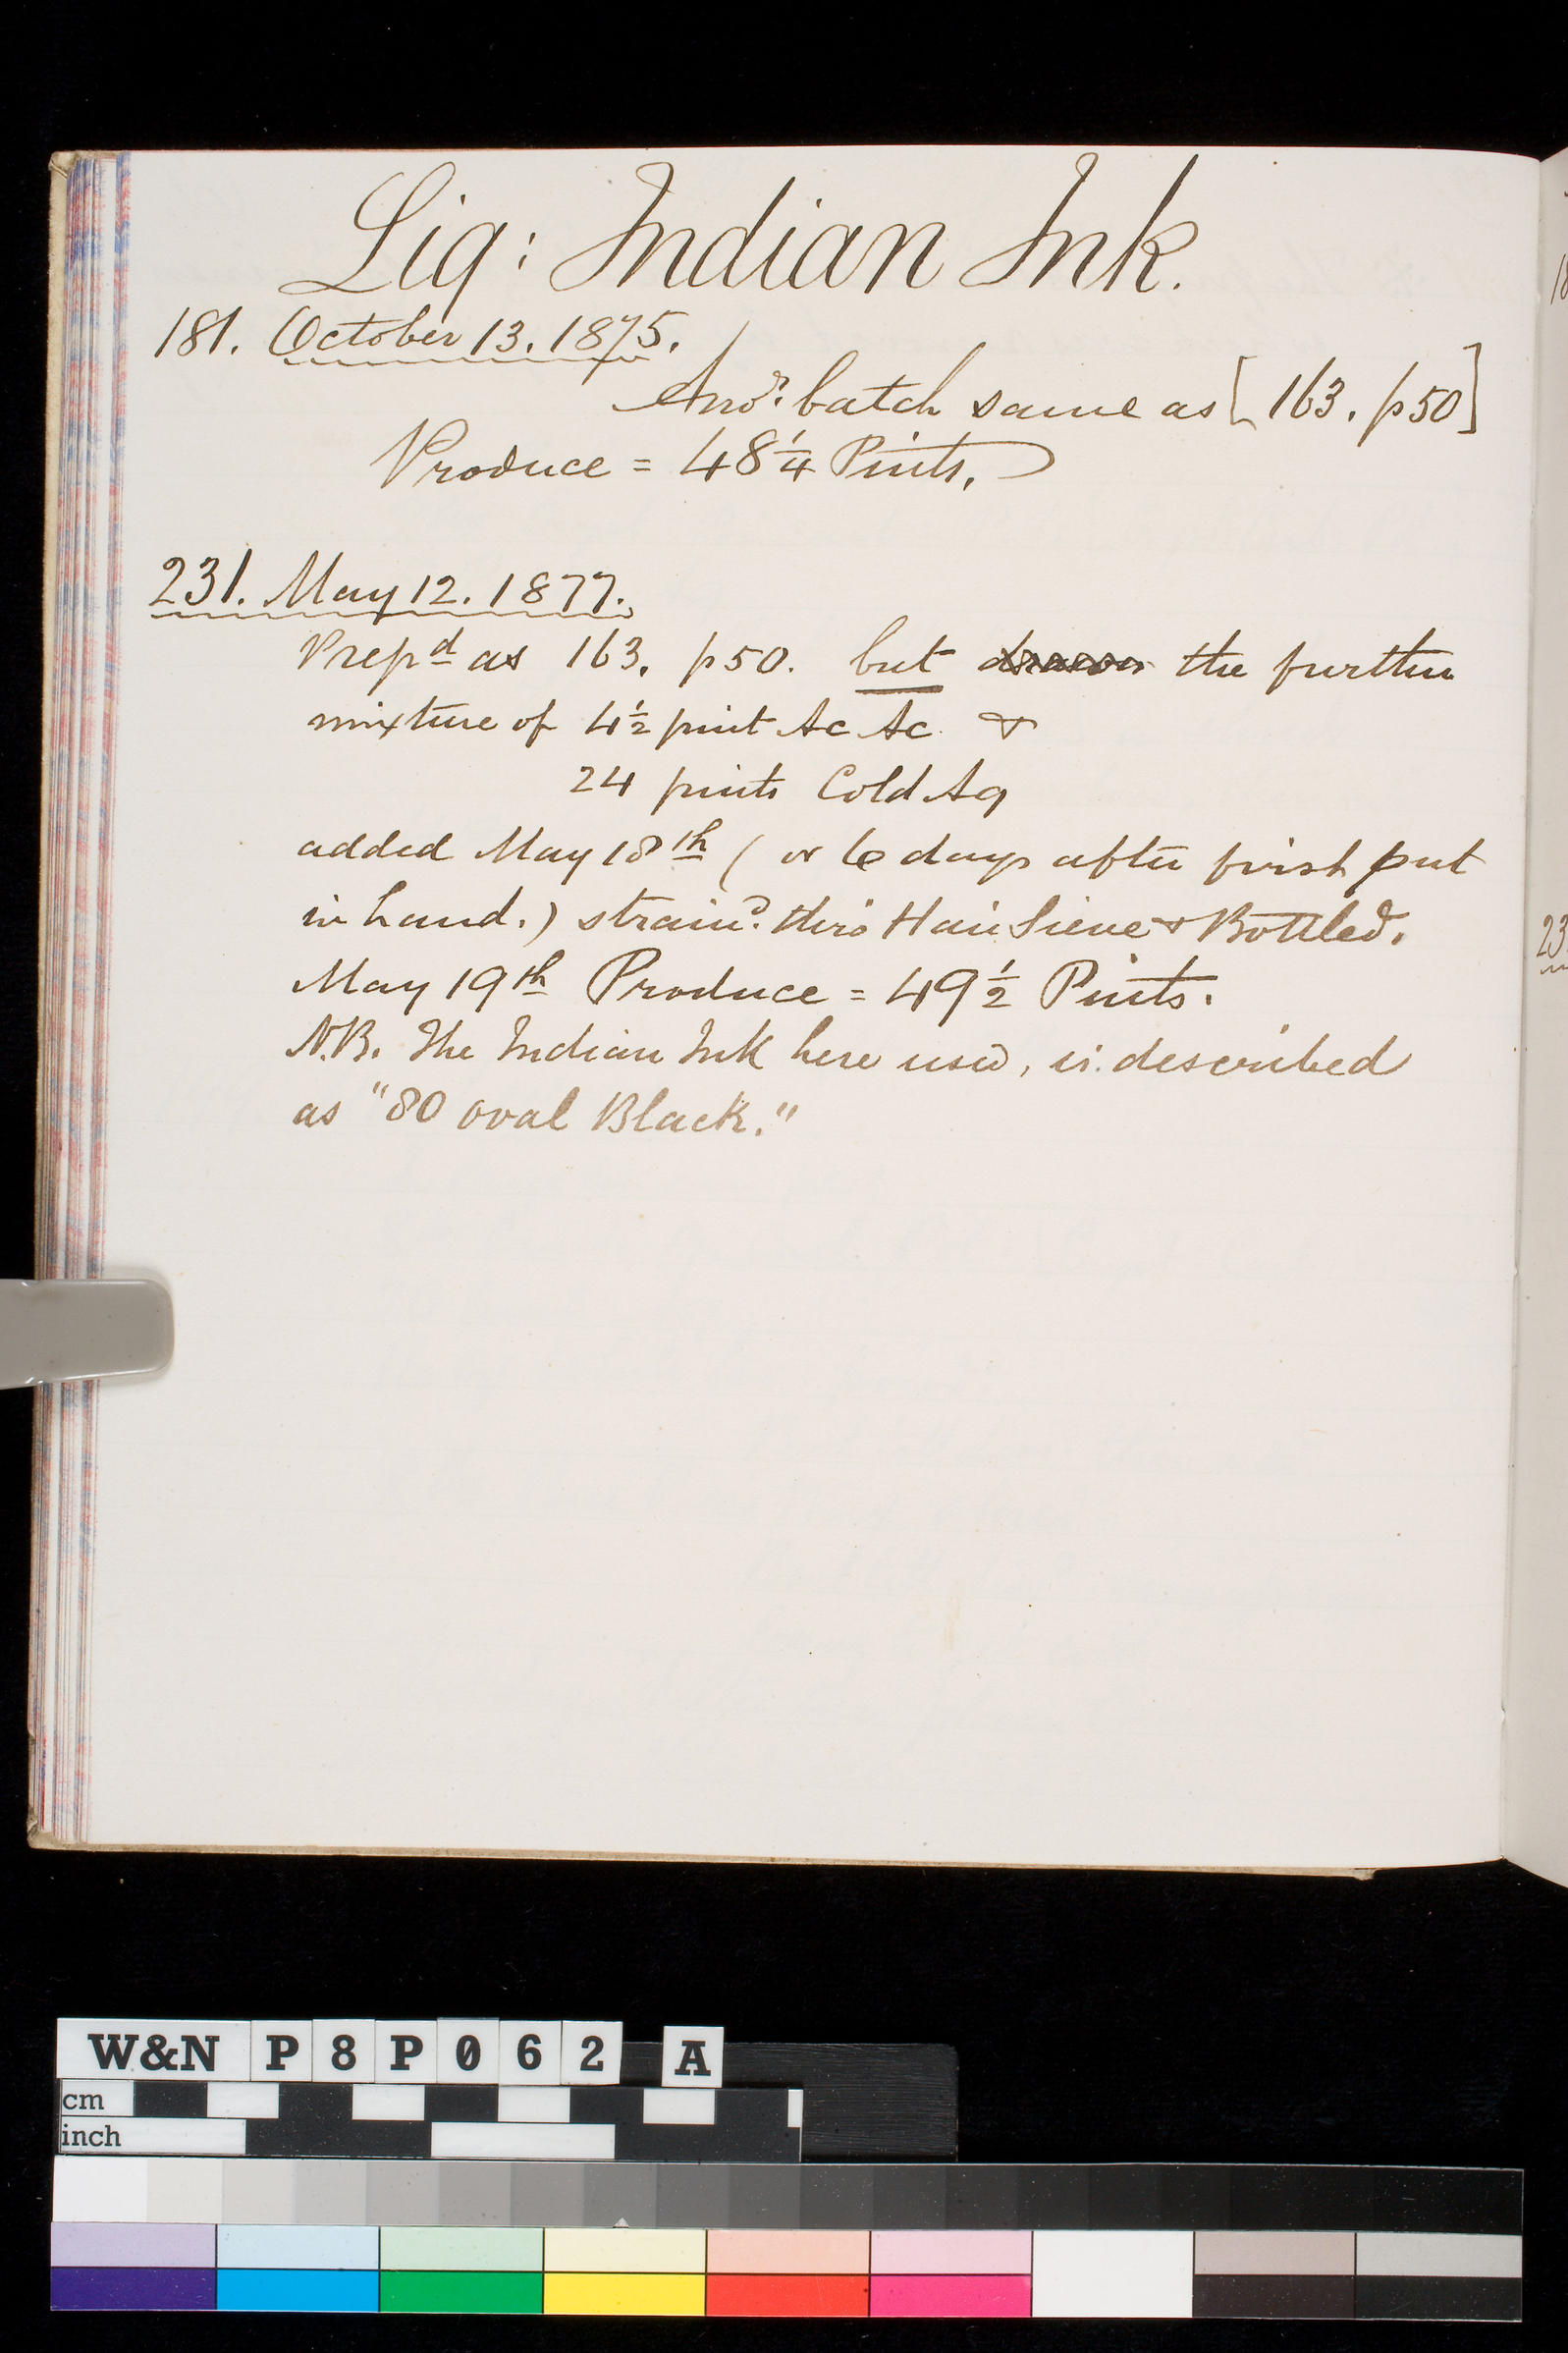 Liq: Indian Ink.
181. October 13. 1875.
Anor. batch same as [163. p50]
Produce = 48 1/4 Pints.
231. May 12. 1877.
Prepd as 163. p50. but the further
mixture of 4 1/2 pint Ac Ac &
24 pints Cold Aq
added May 18th (or 6 days after first put
in hand.) straind. thro Hair Sieve & Bottled.
May 19th Produce = 49 1/2 Pints.
N.B. The Indian Ink here used, is described
as "80 oval Black."
W&N P8P062 A
cm
inch